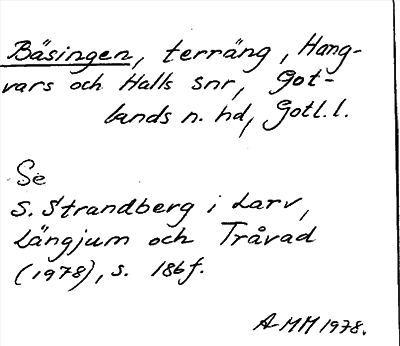 Bäsingen, terräng, Hang-
vars och Halls snr, Got-
lands n. hd, Gotl. l.
Se
S. Strandberg i Larv,
Längjum och Tråvad
(1978), s. 186 f.
A-MM 1978.